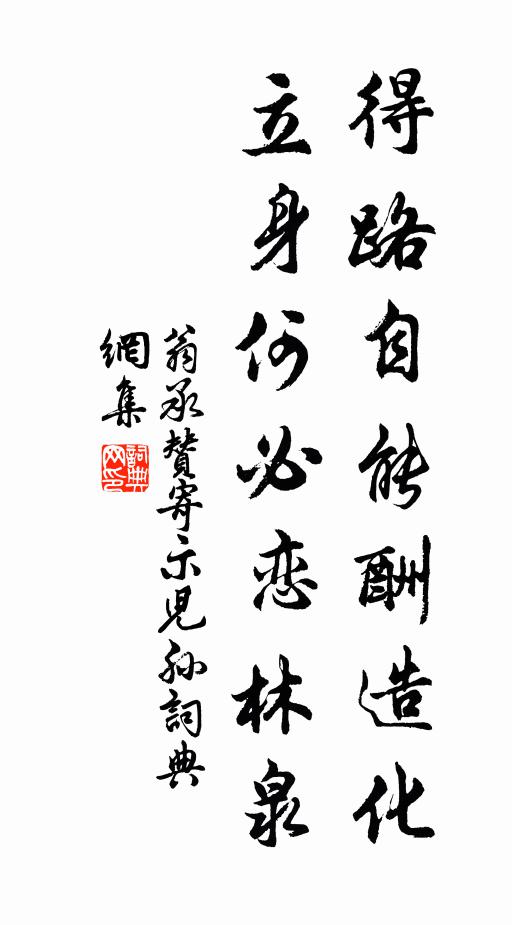 得路自能酬造化
立身何必恋林泉
翁承贊寄示兒孙詞典
網集
詞典网印